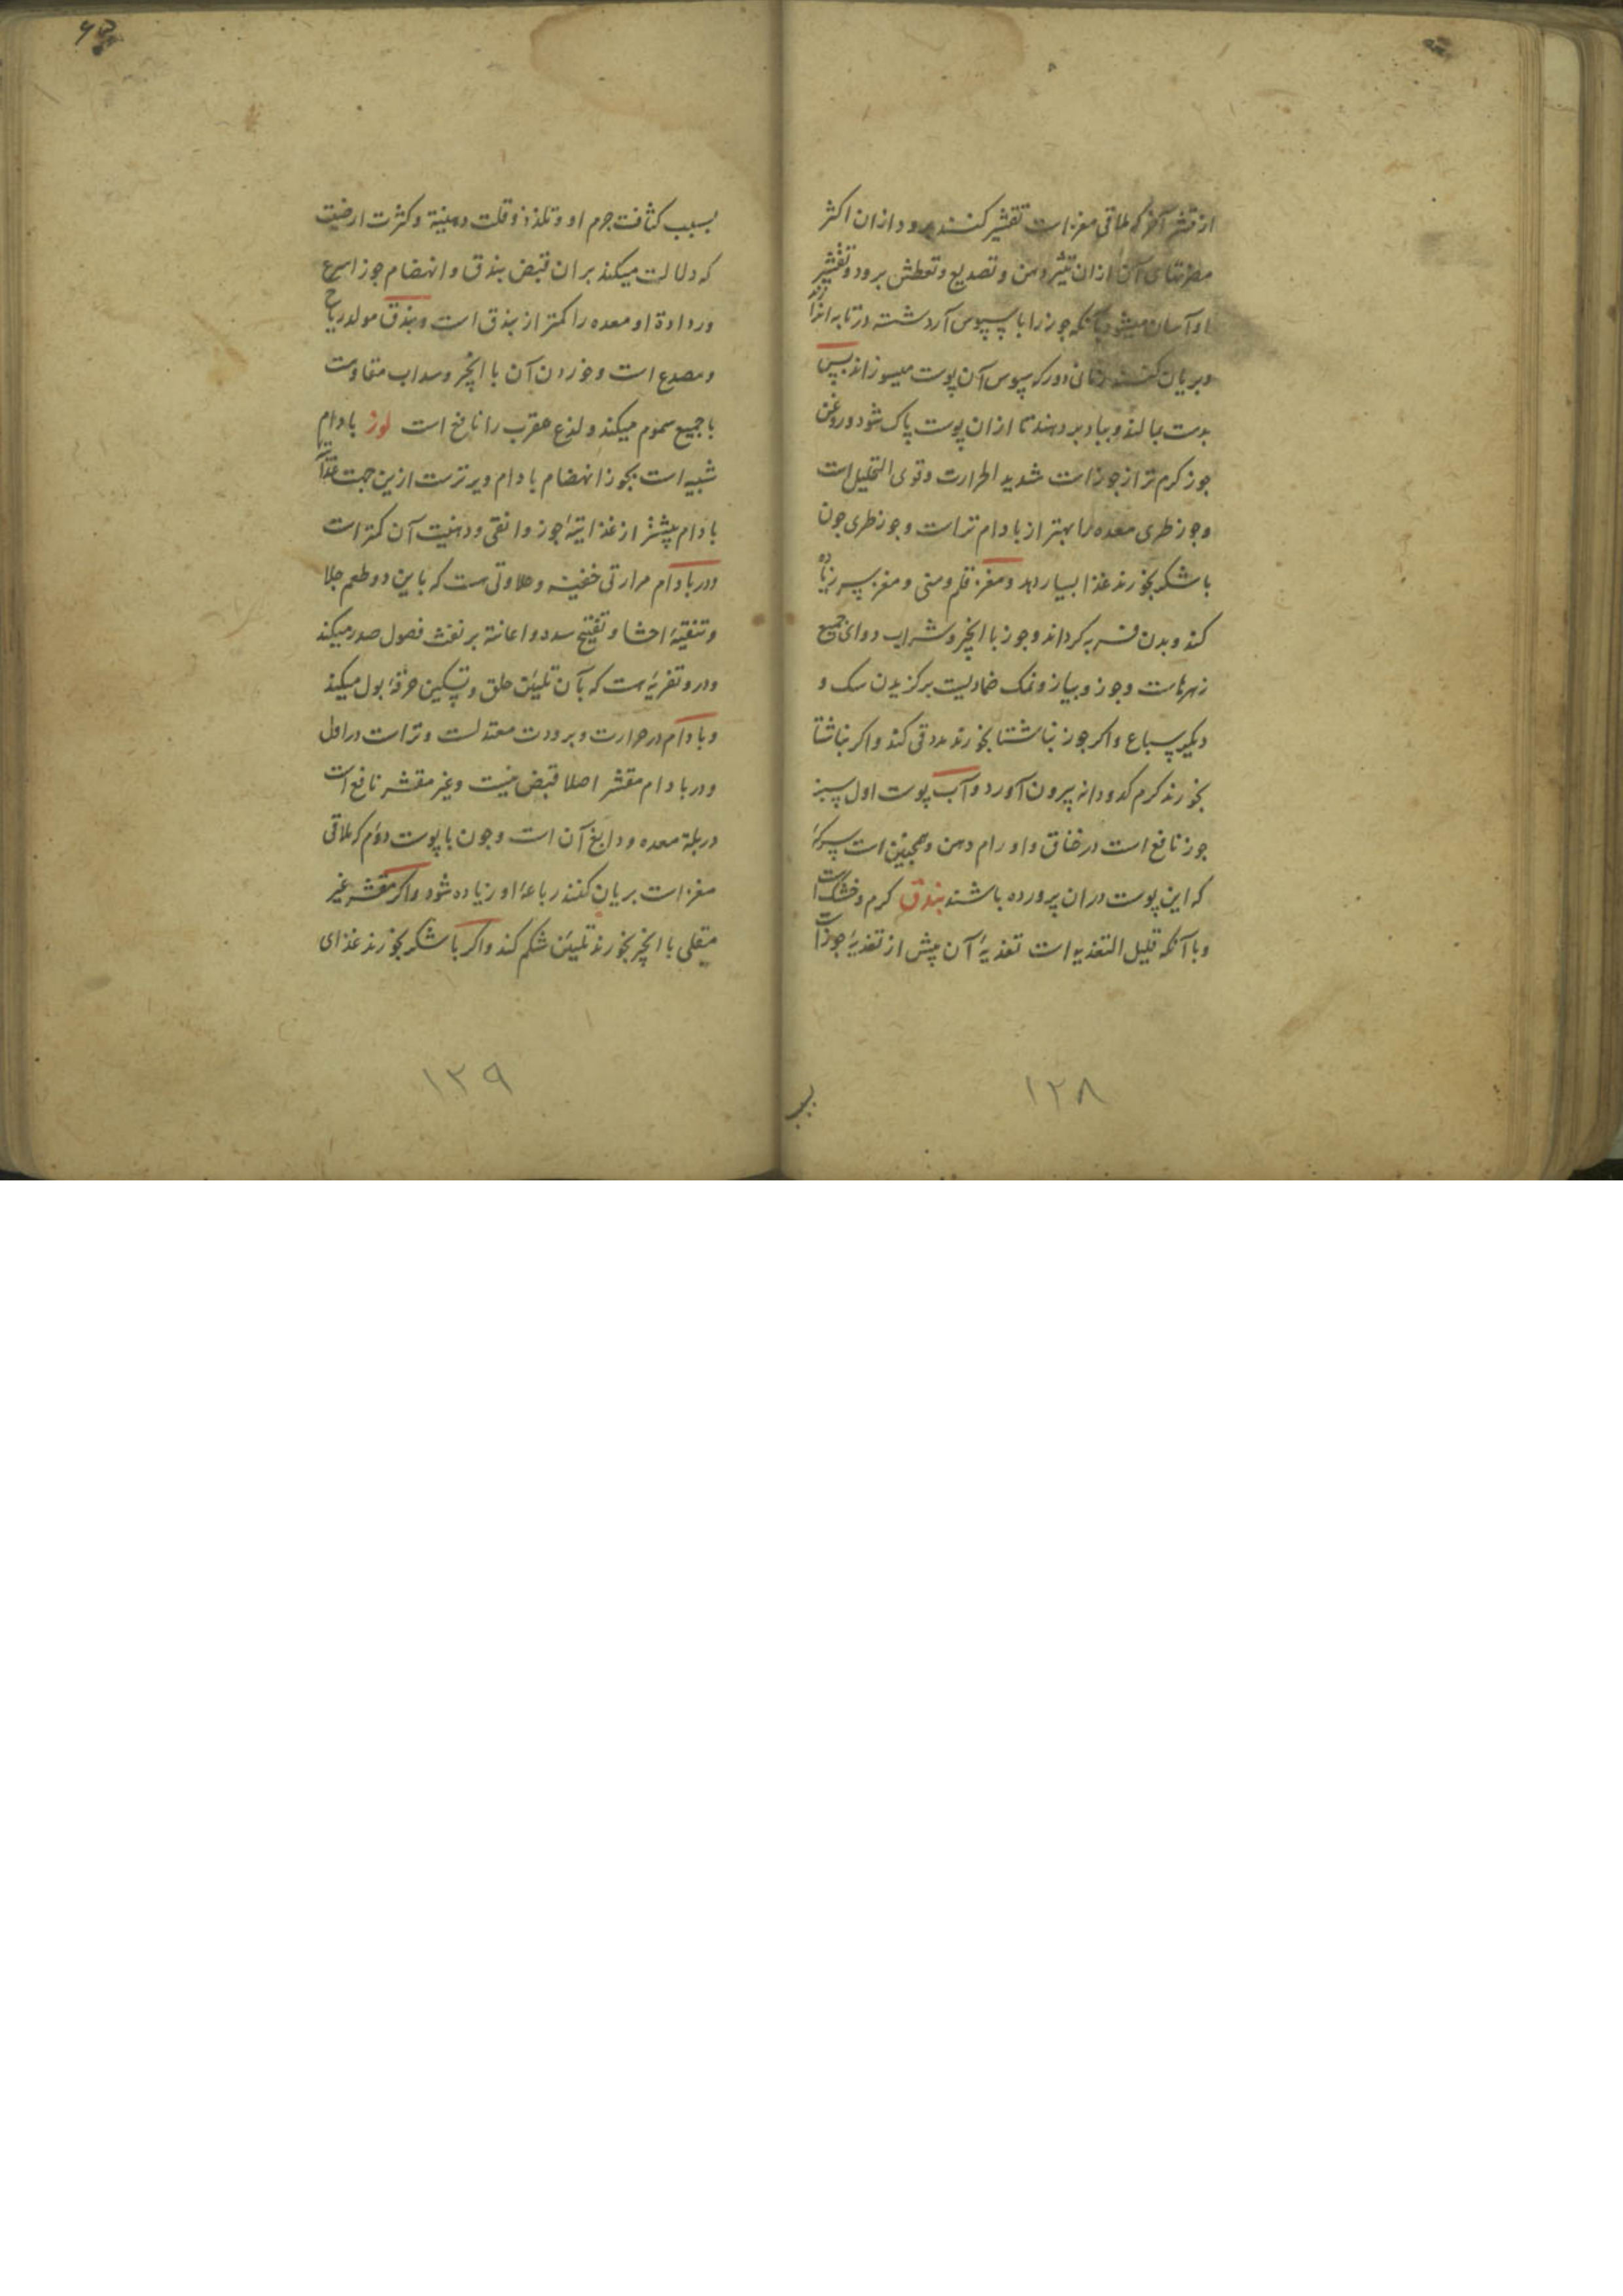 از قشر آخر که ملاقی مغز است تقشیر کنند برود ازان اکثر
مضرتهای آن ازان تبثر دهن و تصدیع و تعطش برود و تقشیر
او آسان میشود بآنکه جوز را با سپوس آرد شسته در تابه اندازند
و بریان کنند زمانی دورکه سپوس آن پوست میسوزاند پس
بدست بمالند و بباد بردهند تا ازان پوست پاک شود و روغن
جوز کرم تر از جوز است شدید الحرارت و قوی التحلیل است
و جوز طری معده را بهتر از بادام تر است و جوز طری جون
با شکر بخورند غذا بسیار دهد و مغز قلم و منی و مغز سر زیاده
کند و بدن فربه کرداند و جوز با انجیر و شراب دوای جمیع
زهرهاست و جوز و پیاز و نمک ضمادیست بر کزیدن سک و
دیکر سباع و اکر جوز بناشتا بخورند مدد قی کند و اکر بناشتا
بخورند کرم کدودانه بیرون آورد و آب پوست اول سبز
جوز نافع است در خناق و اورام دهن و همچنین است سرکهٔ
که این پوست دران پرورده باشند بندق کرم و خشک است
و با آنکه قلیل التغذیه است تغذیهٔ آن بیش از تغذیهٔ جوز است
۱۲۸
بسبب
بسبب کثافت جرم او و تلذذ و قلت دهنیة و کثرت ارضیت
که دلالت میکند بران قبض بندق و انهضام جوز اسرع
و رداءة او معده را کمتر از بندق است و بندق مولد ریاح
و مصدع است و خوردن آن با انجیر و سداب مقاومت
با جمیع سموم میکند و لذع عقرب را نافع است لوز بادام
شبیه است بجوز انهضام بادام دیرترست ازین جهت غذاء
بادام بیشتر از غذائیة جوز و انقی و دهنیت آن کمتر است
و در بادام مرارتی خفیه و حلاوتی هست که باین دو طعم جلا
و تنقیهٔ احشا و تفتیح سدد و اعانة بر نفث فضول صدر میکند
و درو تغریهٔ هست که بآن تلیین حلق و تسکین حرقهٔ بول میکند
و بادام در حرارت و برودت معتدلست و تر است در اول
و در بادام مقشر اصلا قبض نیست و غیر مقشر نافع است
در بلة معده و دابغ آن است و جون با پوست دوم که ملاقی
مغز است بریان کنند رباعهٔ او زیاده شود و اکر مقشر غیر
مقلی با انجیر بخورند تلیین شکم کند و اکر با شکر بخورند غذای
۱۲۹